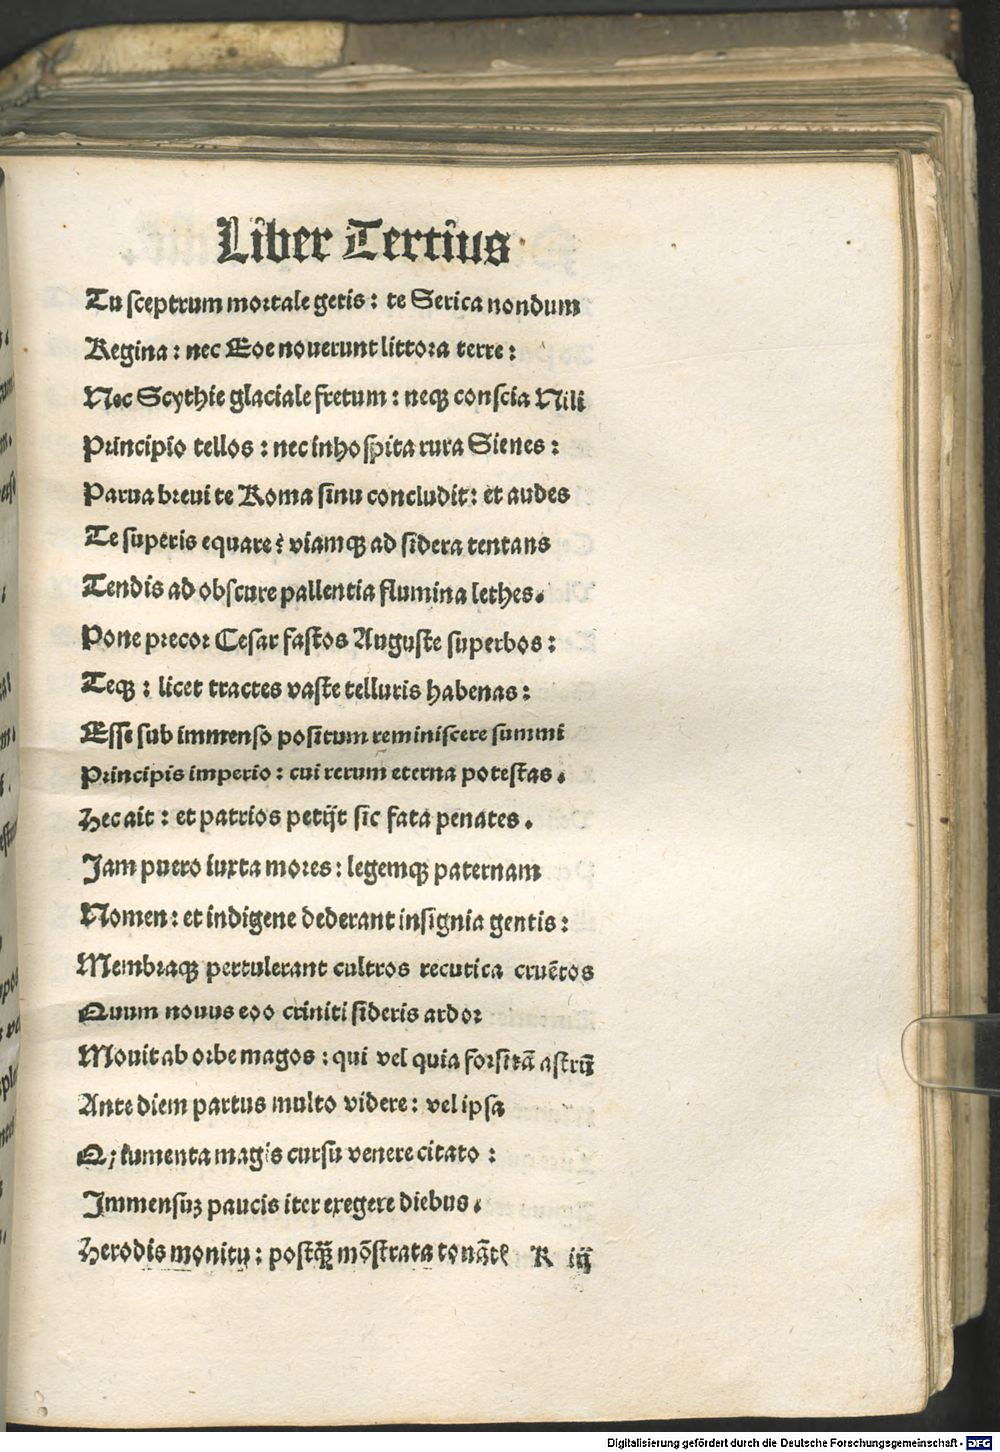 Liber Tertius
Tu sceptrum mortale geris : te Serica nondum
Regina : nec Eoe nouerunt littora terre :
Nec Scythie glaciale fretum : neqꝫ conscia Nili
Principio tellos : nec inhospita rura Sienes :
Parua breui te Roma sinu concludit : et audes
Te superis equare ? viamqꝫ ad sidera tentans
Tendis ad obscure pallentia flumina lethes .
Pone precor Cesar fastos Auguste superbos :
Teqꝫ : licet tractes vaste telluris habenas :
Esse sub immenso positum reminiscere summi
Principis imperio : cui rerum eterna potestas .
Hec ait : et patrios petijt sic fata penates .
Jam puero iuxta mores : legemqꝫ paternam
Nomen : et indigene dederant insignia gentis :
Membraqꝫ pertulerant cultros recutita cruẽtos
Quum nouus eoo criniti sideris ardor
Mouit ab orbe magos : qui vel quia forsitã astrũ
Ante diem partus multo videre : vel ipsa
Q; iumenta magis cursu venere citato :
Immensuꝫ paucis iter exegere diebus .
Herodis monitu : postq̃ꝫ mõstrata tonãtẽ R iij
Digitalisierung gefördert durch die Deutsche Forschungsgemeinschaft - DFG